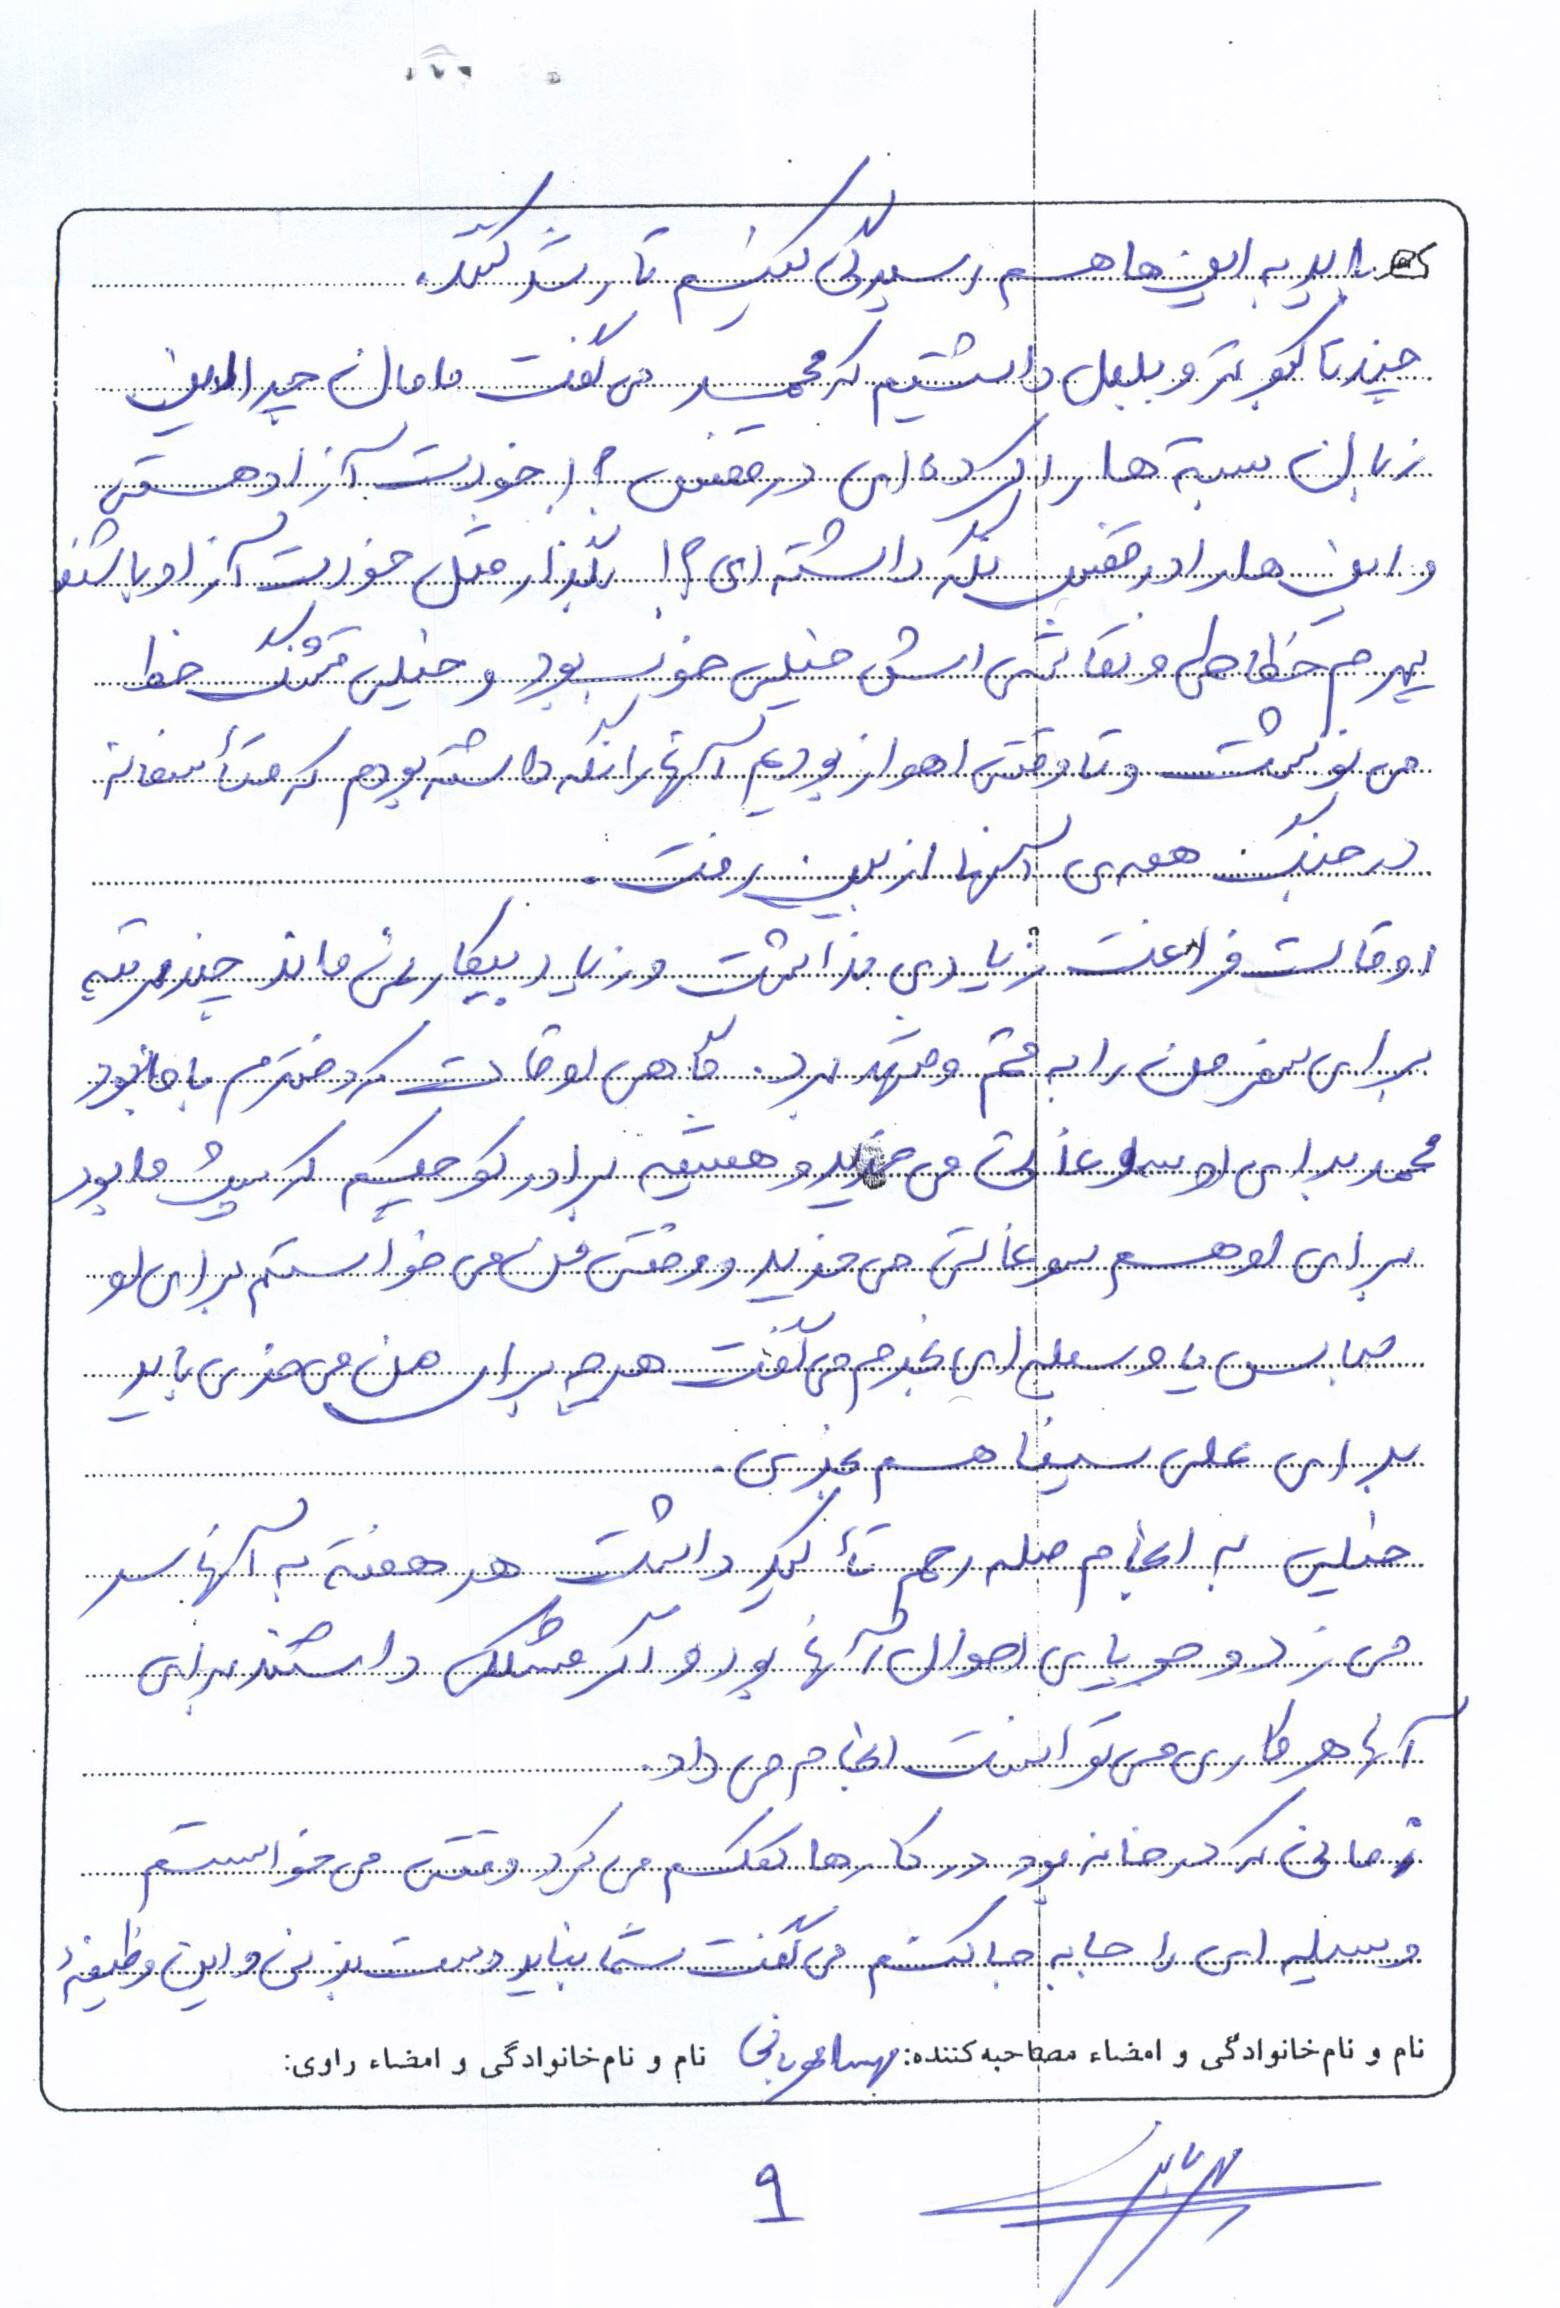 باید به این ها هم رسیدگی کنیم تا رشد کنند.
چند تا کبوتر و بلبل داشتیم که محمد می گفت مامان چرا این
زبان بسته ها را کرده ای در قفس؟! خودت آزاد هستی
و این ها را در قفس نگه داشته ای؟! بگذار مثل خودت آزاد باشند
پسرم خطاطی و نقاشی اش خیلی خوب بود و خیلی قشنگ خط
می نوشت و تا وقتی اهواز بودیم آنها را نگه داشته بودم که متأسفانه
در جنگ همه ی آنها از بین رفت.
اوقات فراغت زیادی نداشت و زیاد بیکار نمی ماند چند مرتبه
برای سفر من را به قم و مشهد برد. گاهی اوقات که دخترم با ما بود
محمد برای او سوغاتی می خرید و همیشه برادر کوچکم که پیش ما بود
برای او هم سوغاتی می خرید و وقتی من می خواستم برای او
لباس یا وسیله ای بخرم می گفت هر چه برای من می خری باید
برای علی سینا هم بخری.
خیلی به انجام صله رحم تأکید داشت هر هفته به آنها سر
می زد و جویای احوال آنها بود و اگر مشکلی داشتند برای
آنها هر کاری می توانست انجام می داد.
زمانی که در خانه بود در کارها کمکم می کرد وقتی می خواستم
وسیله ای را جا به جا کنم می گفت شما نباید دست بزنی و این وظیفۀ
نام و نام خانوادگی و امضاء مصاحبه کننده: نام و نام خانوادگی و امضاء راوی:
۹